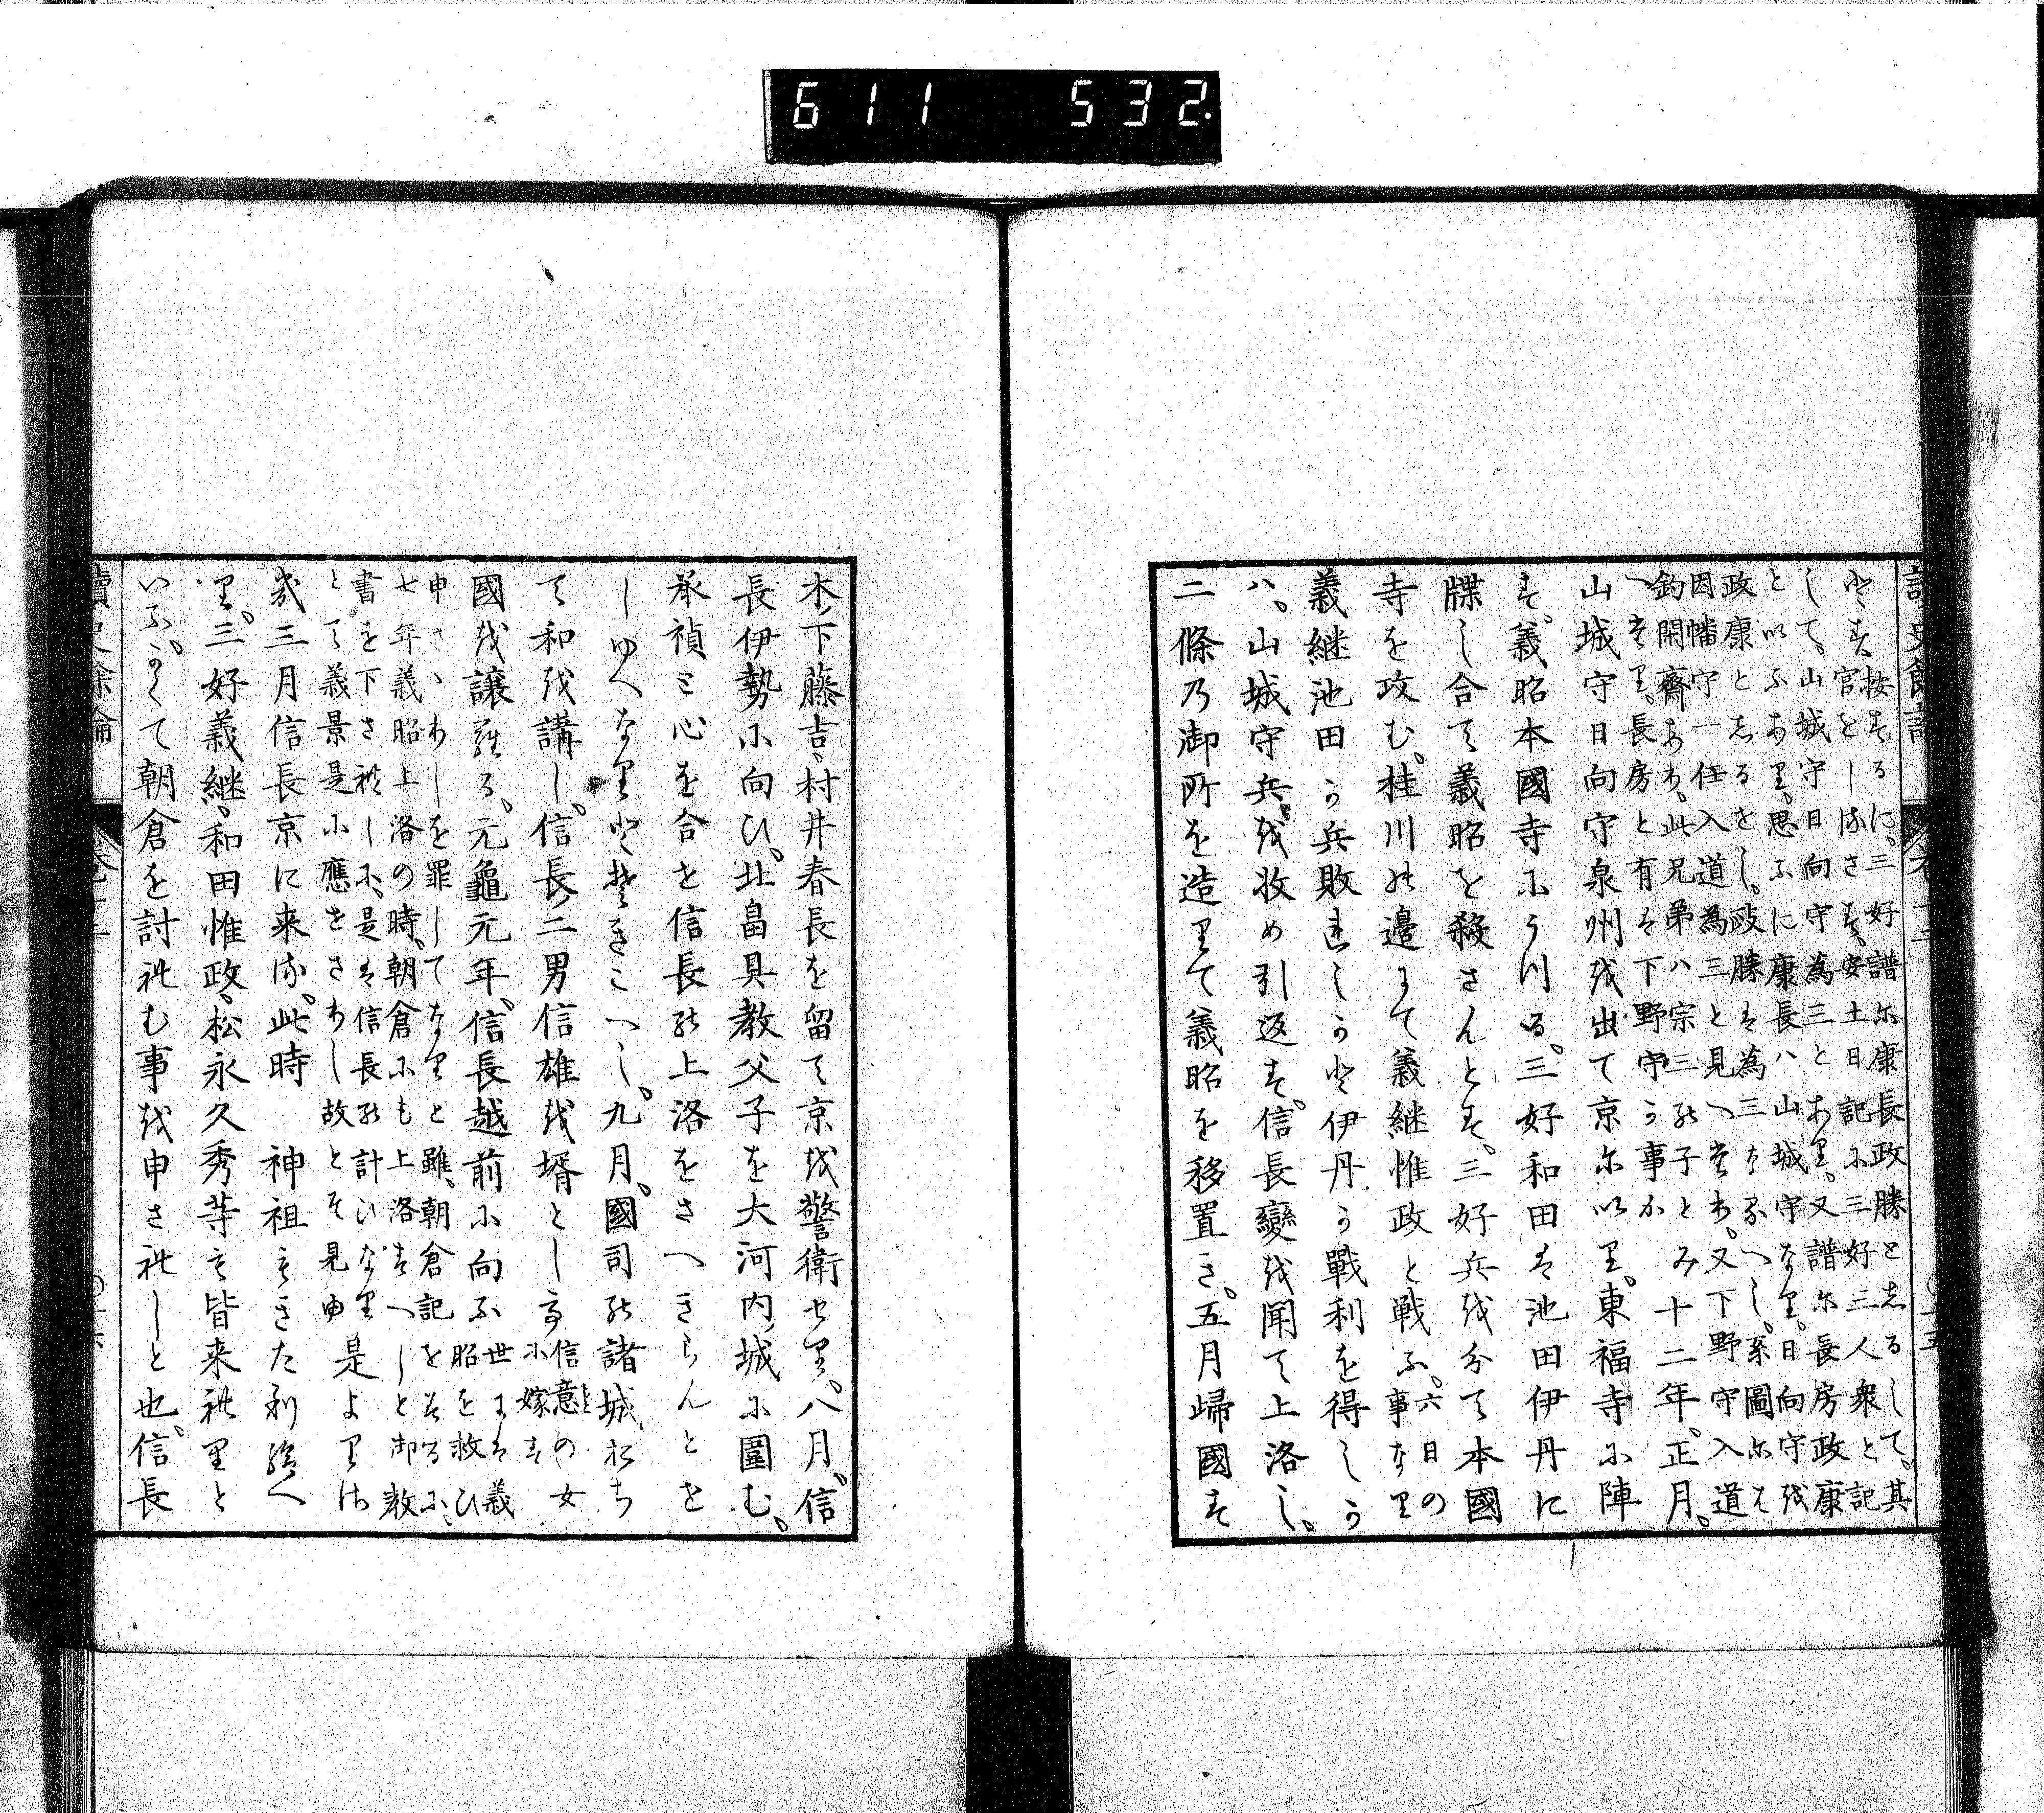 611 532
とす按するに三好譜に康長政勝としるして其
官をしるさす安土日記に三好三人衆と記
して山城守日向守為三とあり又譜に長房政康
といふあり思ふに康長ハ山城守なり日向守を
政康としるをし政勝は為三なるへし系圖には
因幡守一任入道為三と見へたり又下野守入道
釣閑齋あり此兄弟ハ宗三の子とみ
へたり長房と有は下野守の事か十二年正月
山城守日向守泉州を出て京に以り東福寺に陣
す義昭本國寺にうつる三好和田は池田伊丹に
牒し合て義昭を殺さんとす三好兵を分て本國
寺を攻む桂川の邊にて義継惟政と戦ふ六日の事なり
義継池田か兵敗れしかと伊丹か戰利を得しか
ハ山城守兵を收め引返す信長變を聞て上洛し
二條乃御所を造りて義昭を移置き五月歸國す
木下藤吉村井春長を留て京を警衛せり八月信
長伊勢に向ひ北畠具教父子を大河内城に圍む
承禎と心を合せ信長の上洛をさへきらんとせ
しゆへなりときこへし九月國司の諸城おち
て和を講し信長二男信雄を壻とし信意の女に嫁す
國を譲らる元龜元年信長越前に向ふ世には義昭を救ひ
申さゝりしを罪してなりと雖朝倉記をみるに
七年義昭上洛の時朝倉にも上洛すへしと御教
書を下されしに是は信長の計ひなり
とて義景是に應せさりし故とそ見ゆ是よりさ
き三月信長京に来る此時　神祖もきた利給へ
り三好義継和田惟政松永久秀等も皆来れりと
いふかくて朝倉を討れむ事を申されしと也信長
讀史餘論